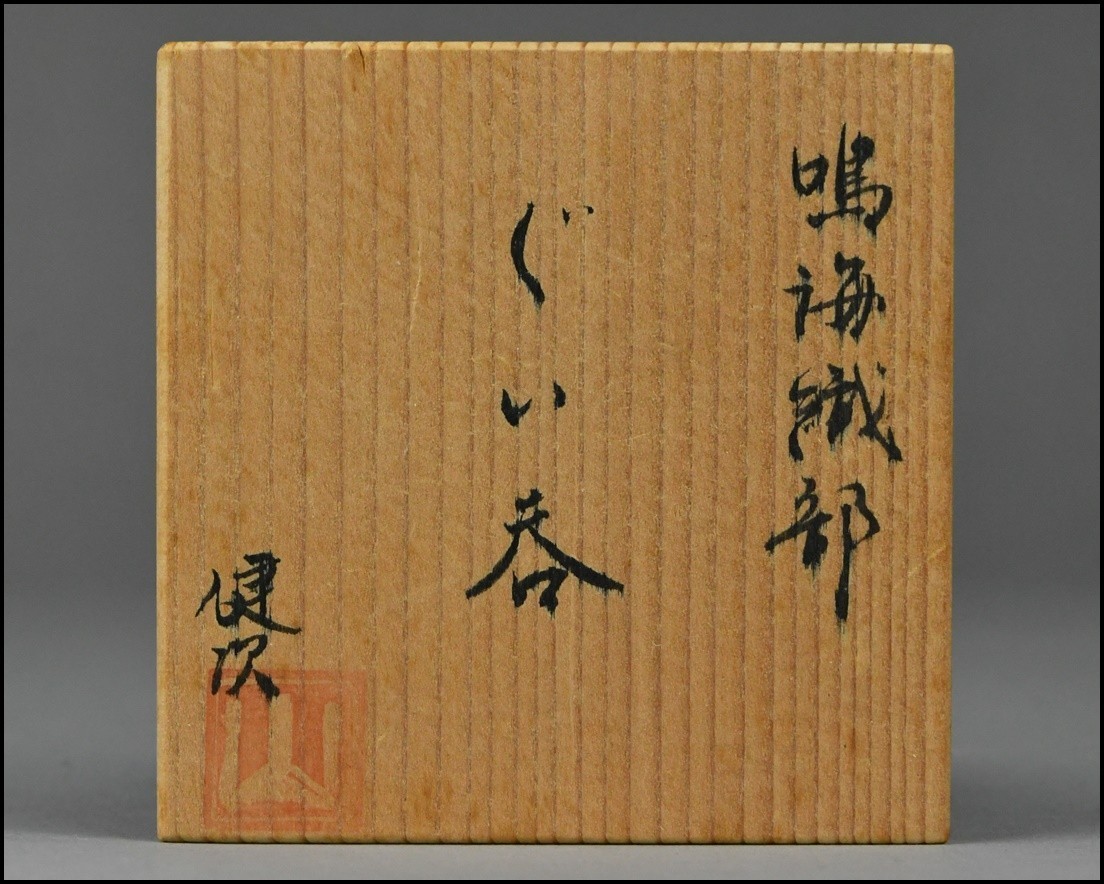 鳴海織部
ぐい呑
健次